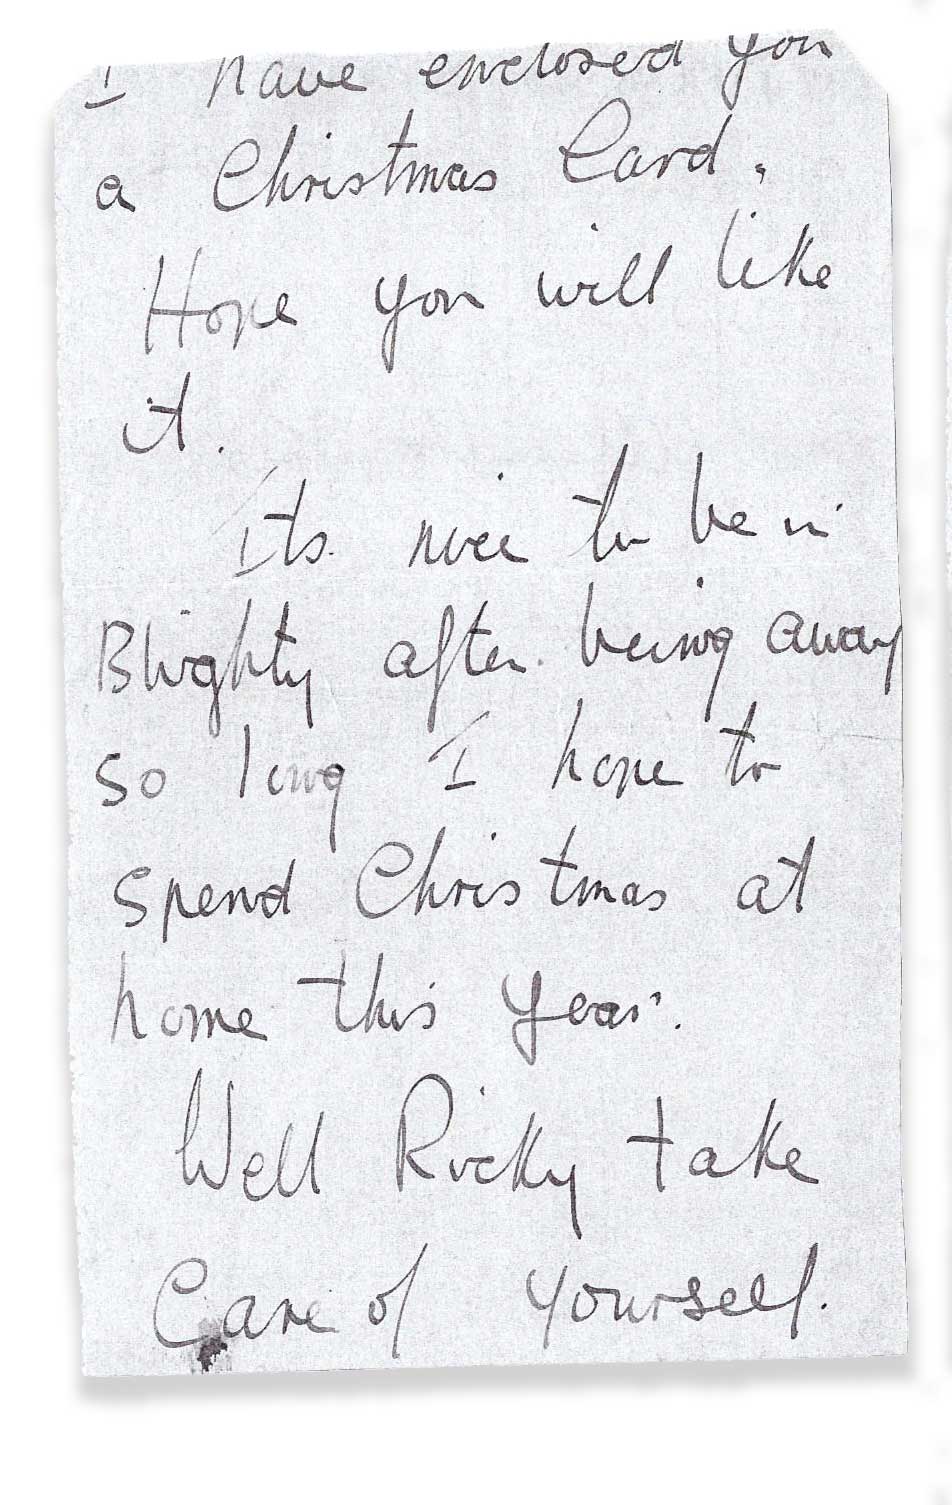 I have enclosed you
a Christmas Card.
Hope you will like
it.
Its nice to be in
Blighty after being away
so long I hope to
spend Christmas at
home this year.
Well Ricky take
Care of yourself.